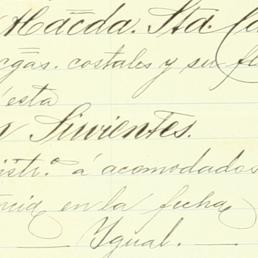 Hacda. Sta. Ca
cgas. costales y su fl
esta
Sirvientes.
istro. á acomodados
ncia en la fecha
Ygual.